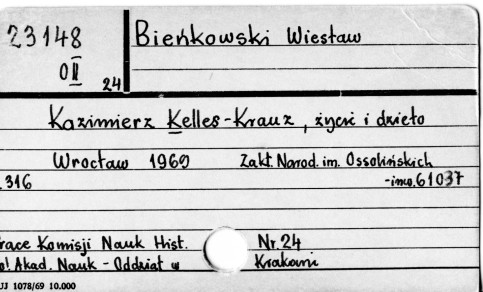 23148 Bieńkowski Wiesław
0II 24
Kazimierz Kelles-Krauz, życie i dzieło
Wrocław 1969 Zakł. Narod. im. Ossolińskich
.316 -inw.61037
race Komisji Nauk Hist. Nr.24
ol Akad. Nauk - Oddział w Krakowi
UJ 1078/69 10.000